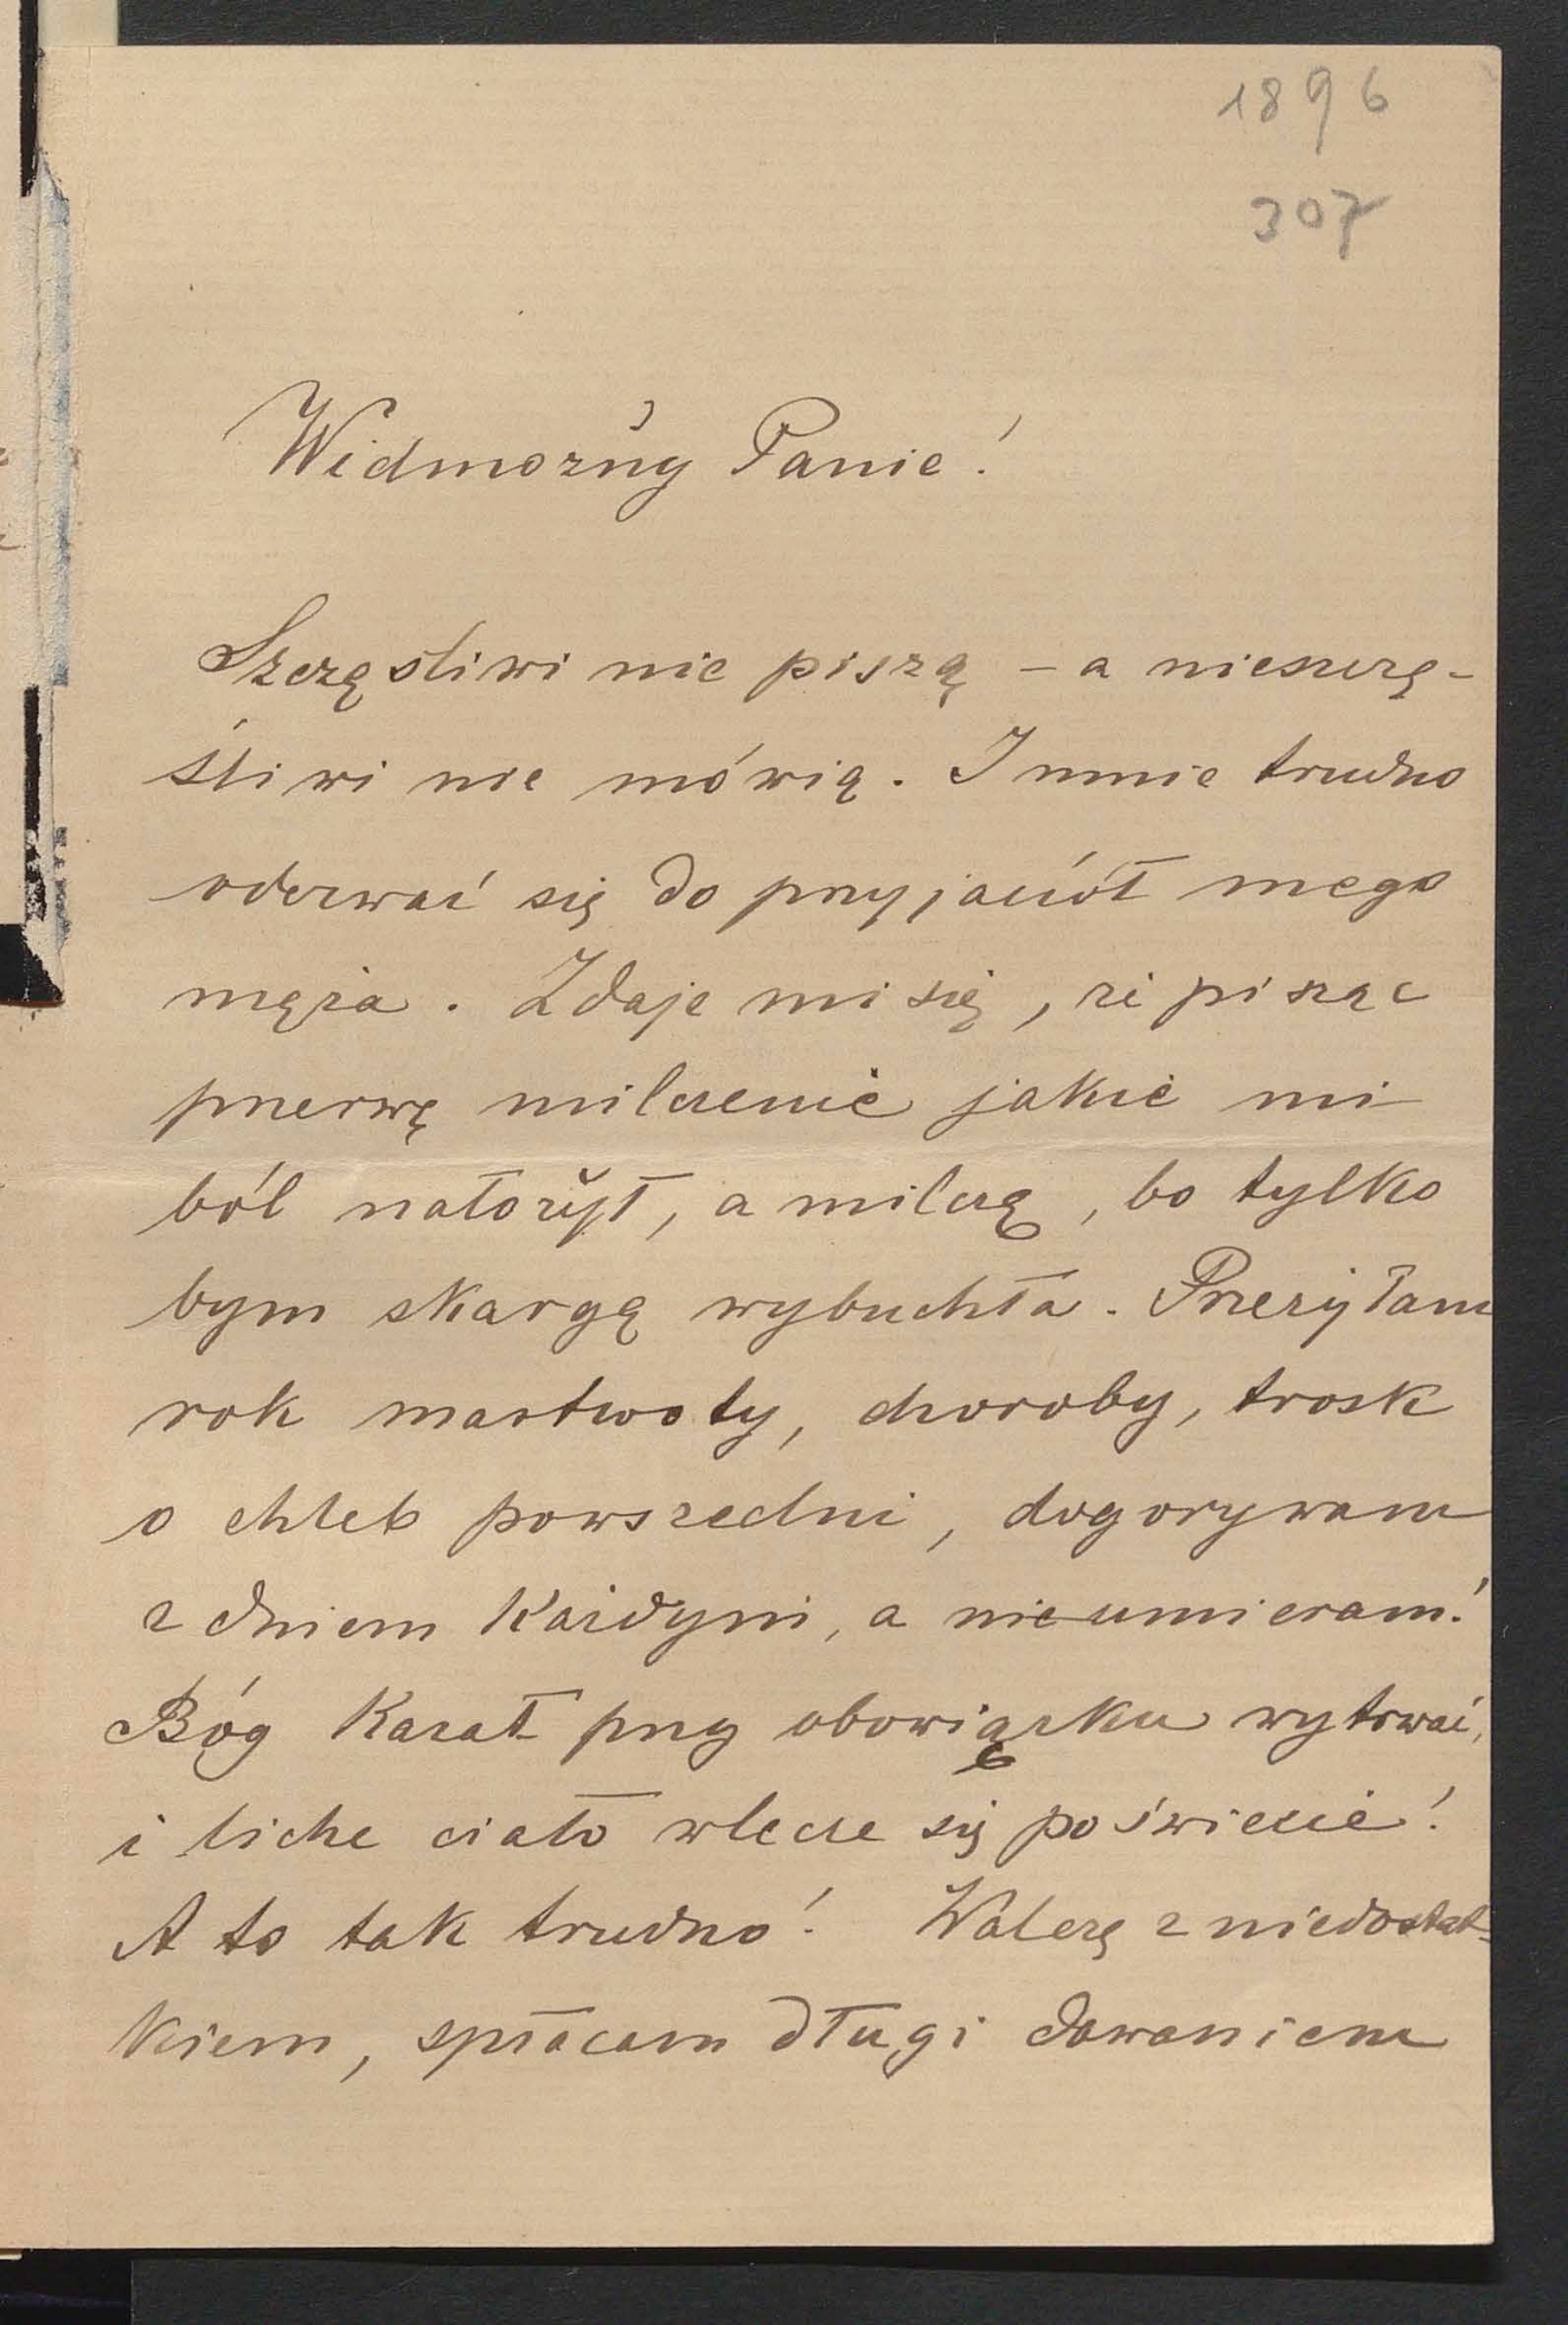 1896
307
Widmożny Panie!
Szczęśliwi nie piszą – a nieszczę-
śliwi nie mówią. I mnie trudno
oderwać się do przyjaciół mego
męża. Zdaje mi się, że pisząc
przerwę milczenie jakie mi
ból nałożył, a milczę, bo tylko
bym skargą wybuchła. Przeżyłam
rok martwoty, choroby, trosk
o chleb powszedni, dogorywam
z dniem każdym, a nie umieram!
Bóg kazał przy obowiązku wytrwać,
i liche ciało wlecze się po świecie!
A to tak trudno! Walczę z niedostat-
kiem, spłacam długi dawaniem